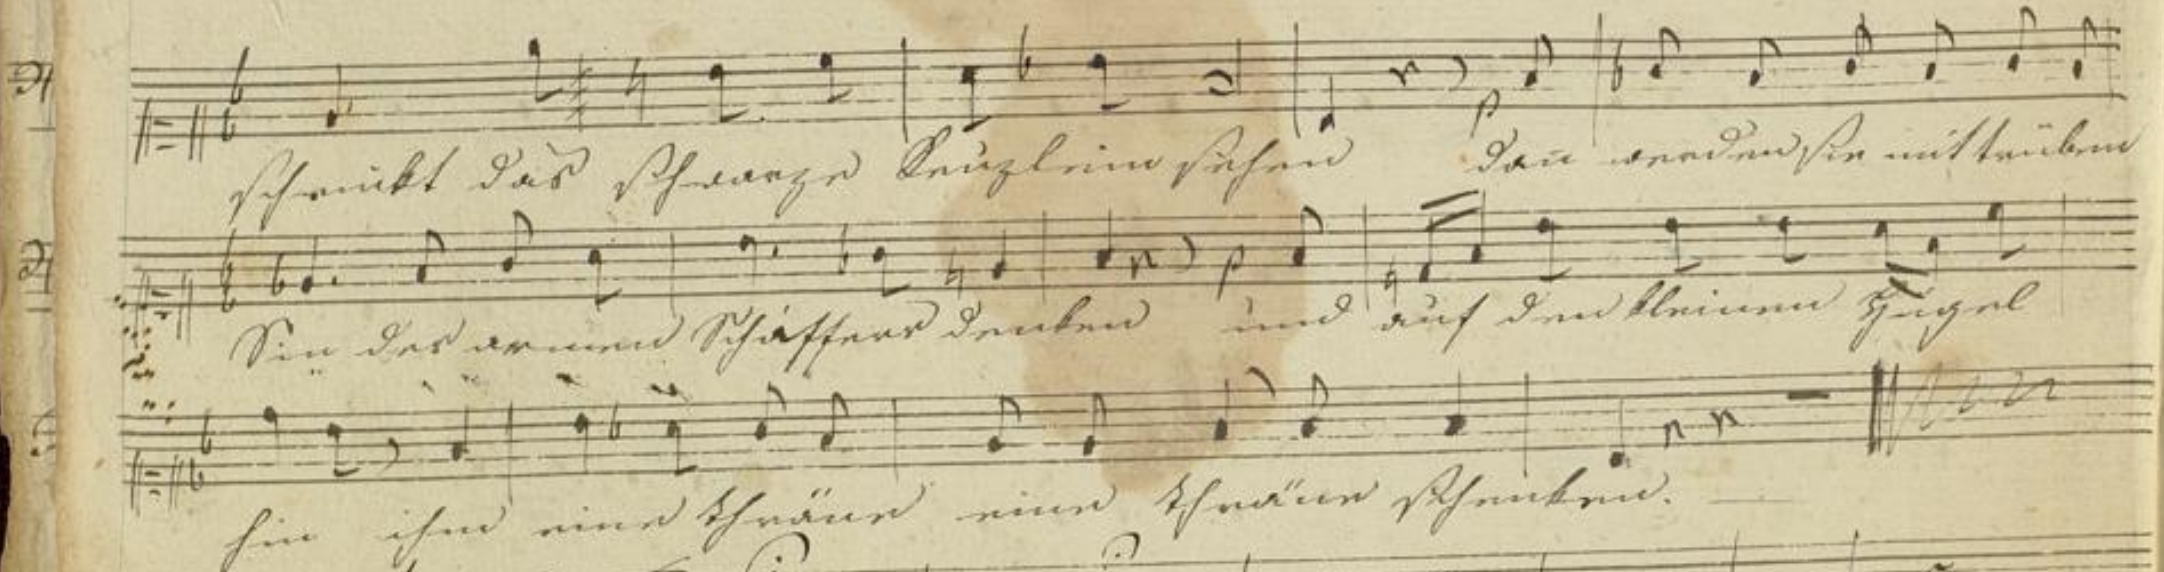 schmückt das schwarze Kreuzlein sehen dan̄ werden sie mit trüben
Sin̄ des armen Schäffers denken und auf den kleinen Hügel
hin ihm eine Thräne eine Thräne schenken.